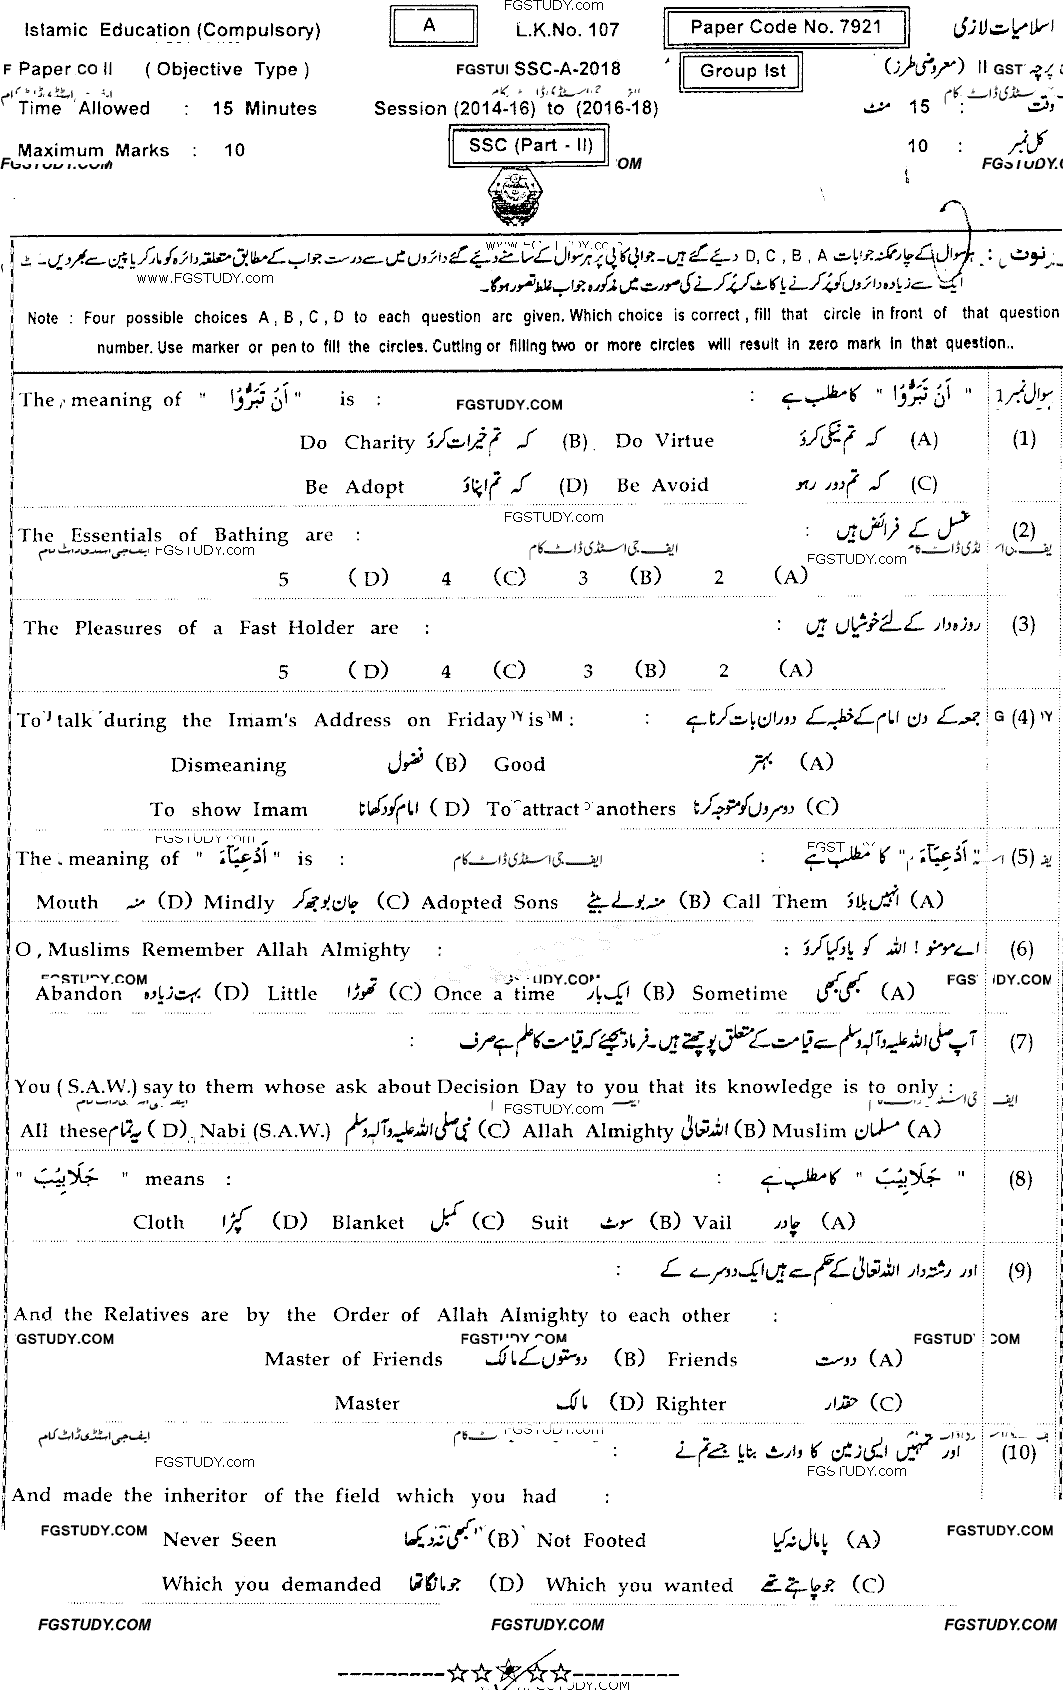 FGSTUDY.com
Islamic Education (Compulsory) A L.K.No. 107 Paper Code No. 7921 اسلامیات لازمی
Paper II ( Objective Type ) SSC-A-2018 Group Ist پرچہ II (معروضی طرز)
Time Allowed : 15 Minutes Session (2014-16) to (2016-18) وقت : 15 منٹ
Maximum Marks : 10 SSC (Part - II) کل نمبر : 10
نوٹ : ہر سوال کے چار ممکنہ جوابات A , B , C , D دیئے گئے ہیں۔ جوابی کاپی پر ہر سوال کے سامنے دیئے گئے دائروں میں سے درست جواب کے مطابق متعلقہ دائرہ کو مارکر یا پین سے بھر دیں۔
www.FGSTUDY.com ایک سے زیادہ دائروں کو پُر کرنے یا کاٹ کر پُر کرنے کی صورت میں مذکورہ جواب غلط تصور ہوگا۔
Note : Four possible choices A , B , C , D to each question are given. Which choice is correct , fill that circle in front of that question
number. Use marker or pen to fill the circles. Cutting or filling two or more circles will result in zero mark in that question..
The meaning of " اَنْ تَبَرُّوْا " is : FGSTUDY.COM " اَنْ تَبَرُّوْا " کا مطلب ہے : سوال نمبر 1
Do Charity کہ تم خیرات کرو (B) Do Virtue کہ تم نیکی کرو (A) (1)
Be Adopt کہ تم اپناؤ (D) Be Avoid کہ تم دور رہو (C)
FGSTUDY.com
The Essentials of Bathing are : غسل کے فرائض ہیں : (2)
FGSTUDY.com ایف جی اسٹڈی ڈاٹ کام FGSTUDY.com
5 (D) 4 (C) 3 (B) 2 (A)
The Pleasures of a Fast Holder are : روزہ دار کے لئے خوشیاں ہیں : (3)
5 (D) 4 (C) 3 (B) 2 (A)
To talk during the Imam's Address on Friday is : جمعہ کے دن امام کے خطبہ کے دوران بات کرنا ہے : (4)
Dismeaning فضول (B) Good بہتر (A)
To show Imam امام کو دکھانا (D) To attract anothers دوسروں کو متوجہ کرنا (C)
The meaning of " اَدْعِیَآءَ " is : ایف جی اسٹڈی ڈاٹ کام " اَدْعِیَآءَ " کا مطلب ہے : (5)
Mouth منہ (D) Mindly جان بوجھ کر (C) Adopted Sons منہ بولے بیٹے (B) Call Them انہیں بلاؤ (A)
O , Muslims Remember Allah Almighty : اے مومنو ! اللہ کو یاد کیا کرو : (6)
Abandon بہت زیادہ (D) Little تھوڑا (C) Once a time ایک بار (B) Sometime کبھی کبھی (A)
آپ صلی اللہ علیہ وآلہ وسلم سے قیامت کے متعلق پوچھتے ہیں۔ فرما دیجیئے کہ قیامت کا علم ہے صرف : (7)
You ( S.A.W.) say to them whose ask about Decision Day to you that its knowledge is to only :
FGSTUDY.com
All these یہ تمام (D) Nabi (S.A.W.) نبی صلی اللہ علیہ وآلہ وسلم (C) Allah Almighty اللہ تعالیٰ (B) Muslim مسلمان (A)
" جَلَابِیْبَ " means : " جَلَابِیْبَ " کا مطلب ہے : (8)
Cloth کپڑا (D) Blanket کمبل (C) Suit سوٹ (B) Vail چادر (A)
اور رشتہ دار اللہ تعالیٰ کے حکم سے ہیں ایک دوسرے کے : (9)
And the Relatives are by the Order of Allah Almighty to each other :
GSTUDY.COM FGSTUDY.COM FGSTUDY.COM
Master of Friends دوستوں کے مالک (B) Friends دوست (A)
Master مالک (D) Righter حقدار (C)
ایف جی اسٹڈی ڈاٹ کام FGSTUDY.com
اور تمہیں ایسی زمین کا وارث بنایا جسے تم نے : (10)
FGSTUDY.com FGSTUDY.com
And made the inheritor of the field which you had :
FGSTUDY.COM Never Seen کبھی نہ دیکھا (B) Not Footed پامال نہ کیا (A) FGSTUDY.COM
Which you demanded جو مانگا تھا (D) Which you wanted جو چاہتے تھے (C)
FGSTUDY.COM FGSTUDY.COM FGSTUDY.COM